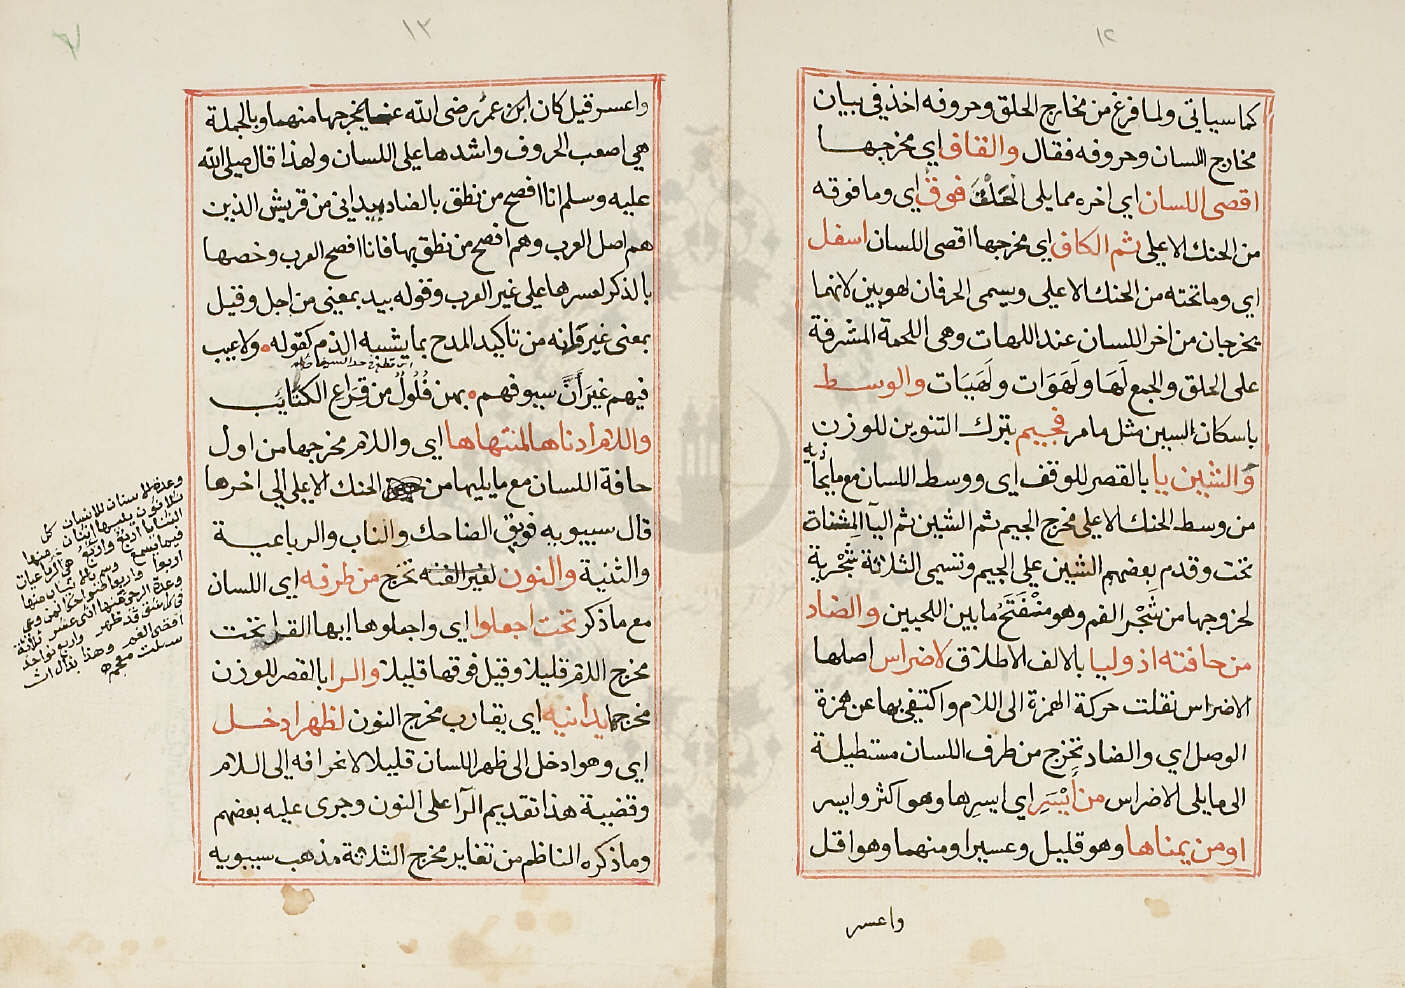 ١٢
كما سياتي ولما فرغ من مخارج الحلق وحروفه اخذ في بيان
مخارج اللسان وحروفه فقال والقاف اي مخرجها
اقصى اللسان اي اخره مما يلي الحنك فوق اي وما فوقه
من الحنك الاعلى ثم الكاف اي مخرجها اقصى اللسان اسفل
اي وما تحته من الحنك الاعلى ويسمى الحرفان لهويين لانهما
يخرجان من اخر اللسان عند اللهات وهي اللحمة المشرفة
على الحلق والجمع لَهَا ولَهَوَات ولَهَيَات والوسط
باسكان السين مثل ما مر فجيم بترك التنوين للوزن
والشين يا بالقصر للوقف اي ووسط اللسان مع ما يحاذيه
من وسط الحنك الاعلى مخرج الجيم ثم الشين ثم اليآ المثناة
تحت وقدم بعضهم الشين على الجيم وتسمى الثلاثة شَجْرية
لخروجها من شَجْر الفم وهو منْفَتَحُ ما بين اللحيين والضاد
من حافته اذ وليا بالالف الاطلاق لاضراس اصلها
الاضراس نقلت حركة الهمزة الى اللام واكتفي بها عن همزة
الوصل اي والضاد تخرج من طرف اللسان مستطيلة
الى ما يلي الاضراس من اَيْسَرِ اي ايسرها وهو اكثر وايسر
او من يمناها وهو قليل وعسير او منهما وهو اقل
واعسر
١٣
واعسر قيل كان ابن عمر رضى الله عنه يخرجها منهما وبالجملة
هي اصعب الحروف واشدها على اللسان ولهذا قال صلى الله
عليه وسلم انا افصح من نطق بالضاد بيد اني من قريش الذين
هم اصل العرب وهم افصح من نطق بها فانا افصح العرب وخصها
بالذكر لعسرها على غير العرب وقوله بيد بمعنى من اجل وقيل
بمعنى غير وانه من تاكيد المدح بما يشبه الذم كقوله ولا عيب
فيهم غيرَ أنَّ سيوفهم بهن فُلُولٌ من قِرَاع الكتَائب
واللام أدناها لمنتهاها اي واللام مخرجها من اول
حافة اللسان مع ما يليها من الحنك الاعلى الى اخرها
قال سيبويه فويق الضاحك والناب والرباعية
والثنية والنون لغير الغنه تخرج من طرفه اي اللسان
مع ما ذكر تحت اجعلوا اي واجعلوها ايها القرا تحت
مخرج اللام قليلا وقيل فوقها قليلا والرا بالقصر للوزن
مخرجها يدانيه اي يقارب مخرج النون لظهر ادخل
اي وهو ادخل الى ظهر اللسان قليلا لانحرافه الى اللام
وقضية هذا تقديم الرآ على النون وجرى عليه بعضهم
وما ذكره الناظم من تغاير مخرج الثلاثة مذهب سيبويه
وعدة الاسنان للانسان كل